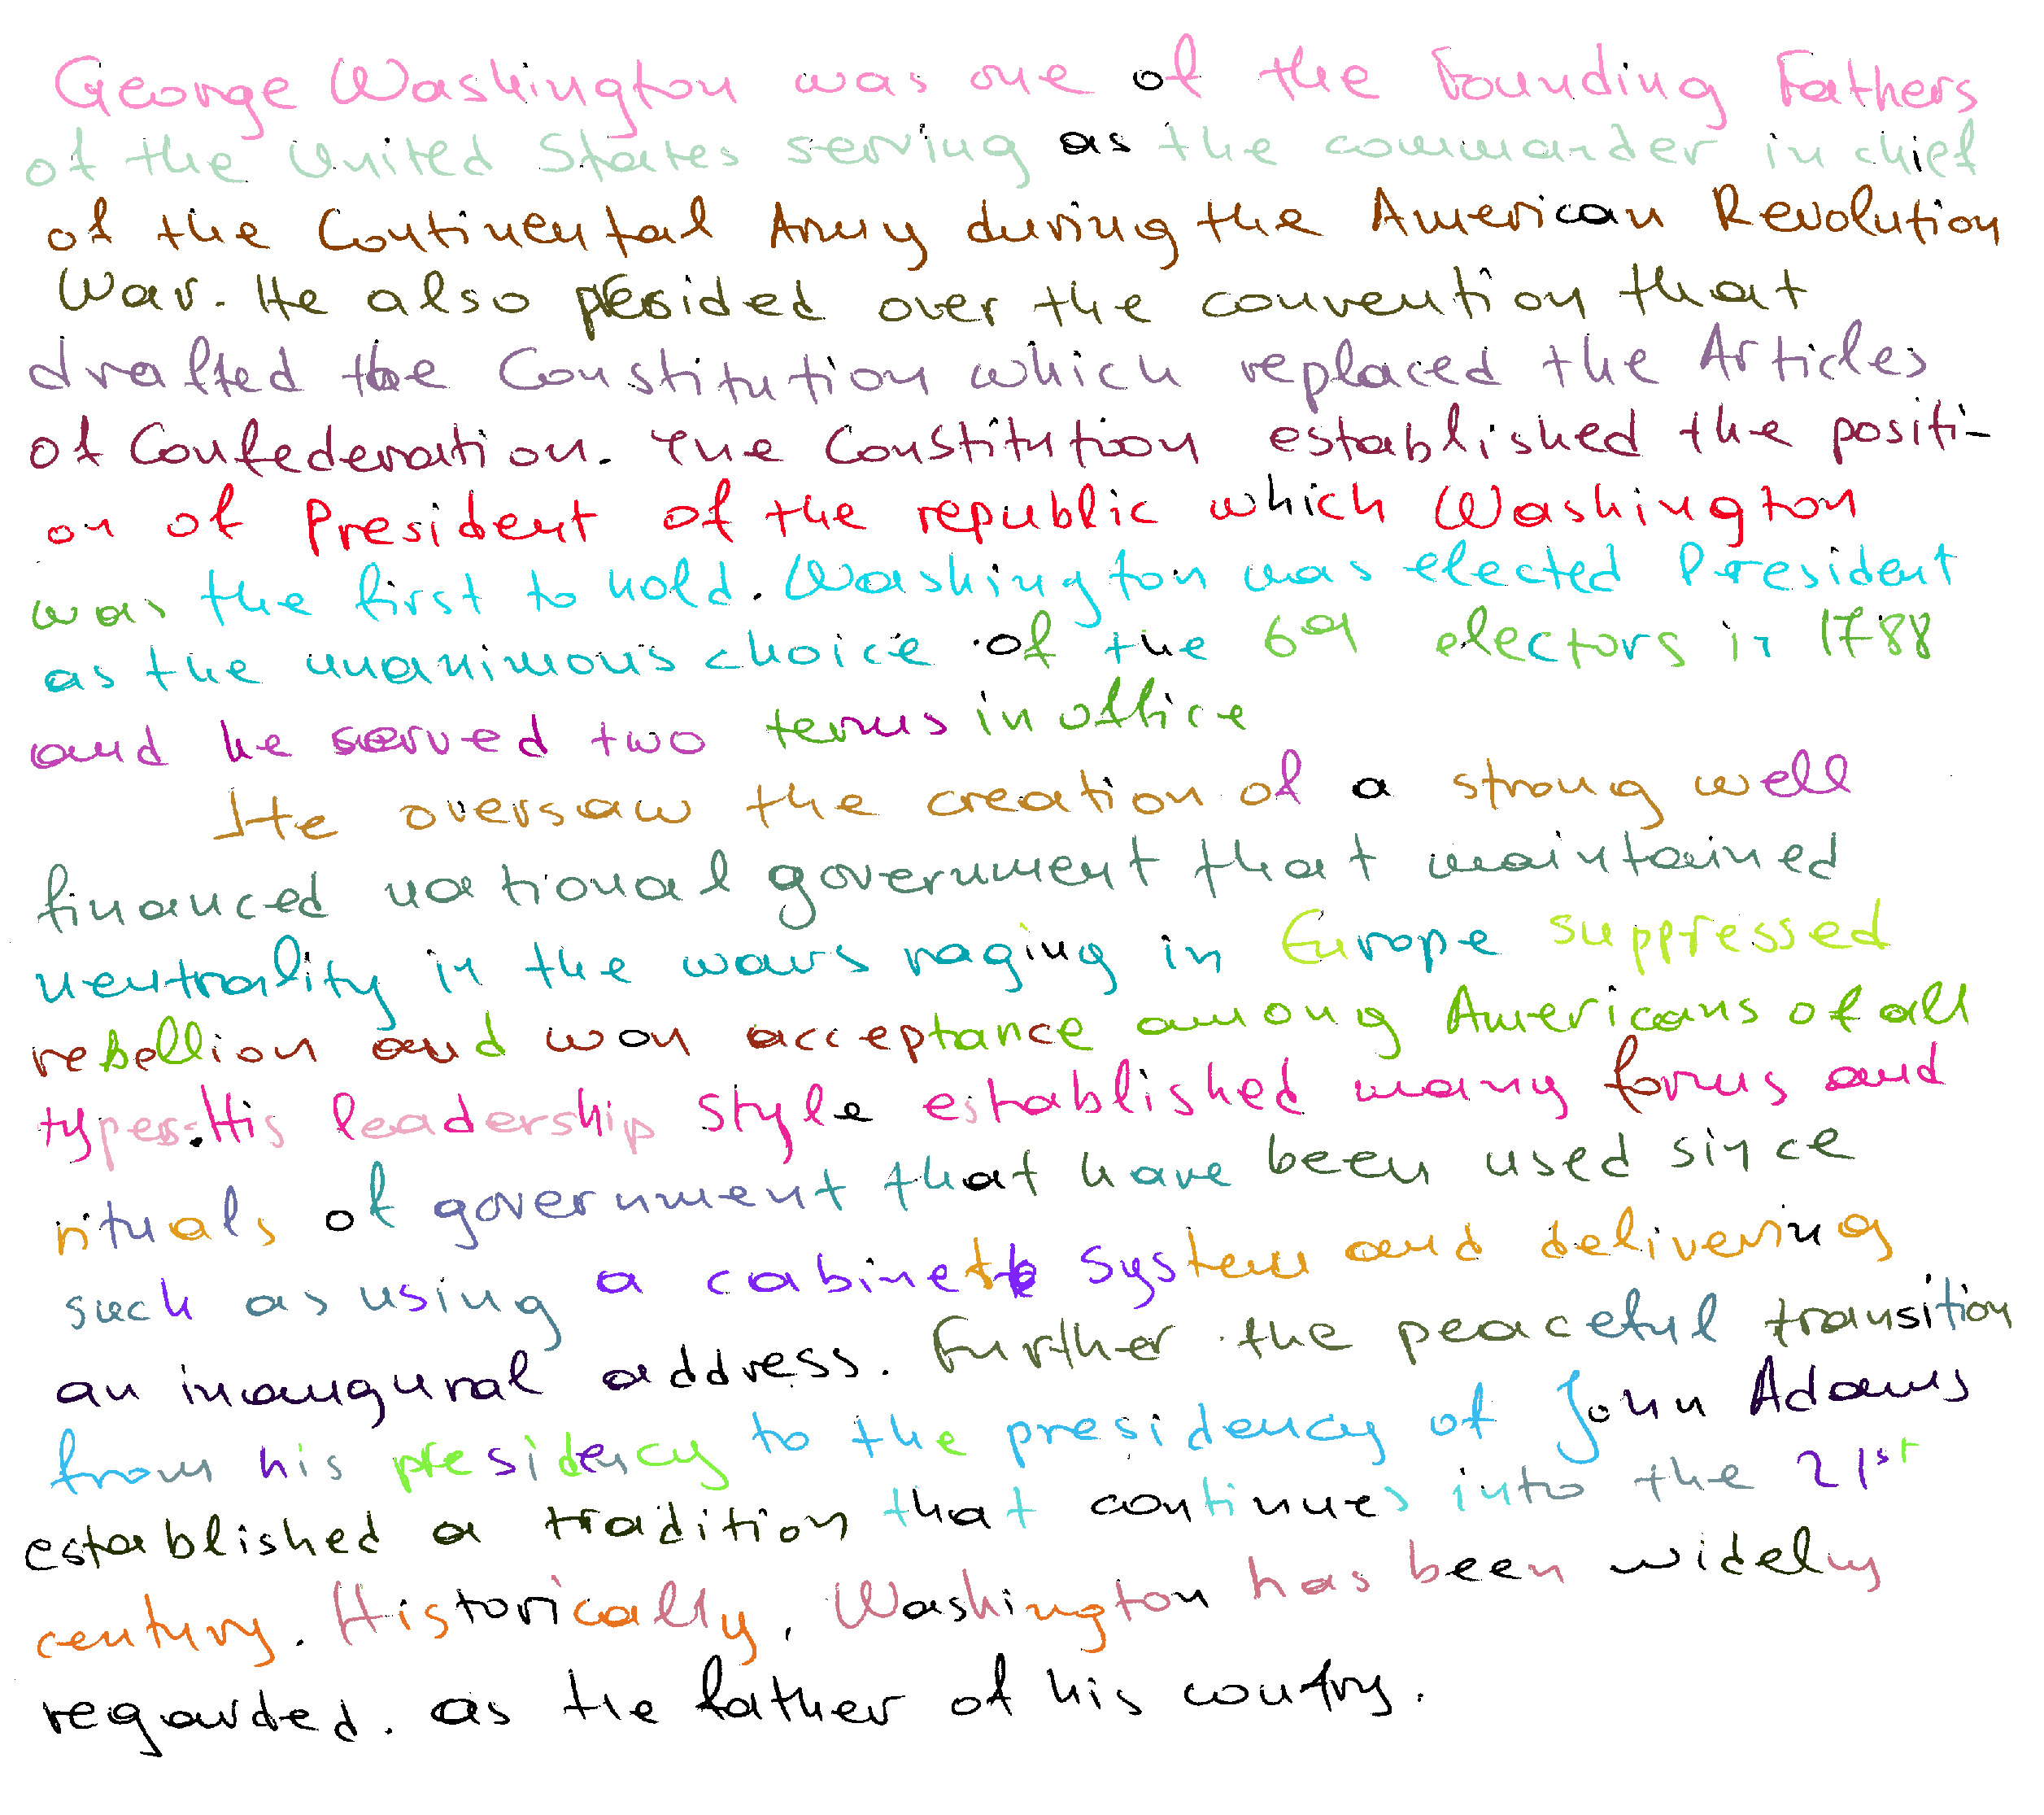 George Washington was one of the Founding Fathers
of the United States serving as the commander in chief
of the Continental Army during the American Revolution
War. He also presided over the convention that
drafted the Constitution which replaced the Articles
of Confederation. The Constitution established the positi-
on of President of the republic which Washington
was the first to hold. Washington was elected President
as the unanimous choice of the 69 electors in 1788
and he served two terms in office
He oversaw the creation of a strong well
financed national government that maintained
neutrality in the wars raging in Europe suppressed
rebellion and won acceptance among Americans of all
types. His leadership style established many forms and
rituals of government that have been used since
such as using a cabinet system and delivering
an inaugural address. Further the peaceful transition
from his presidency to the presidency of John Adams
established a tradition that continues into the 21st
century. Historically, Washington has been widely
regarded. as the father of his country.